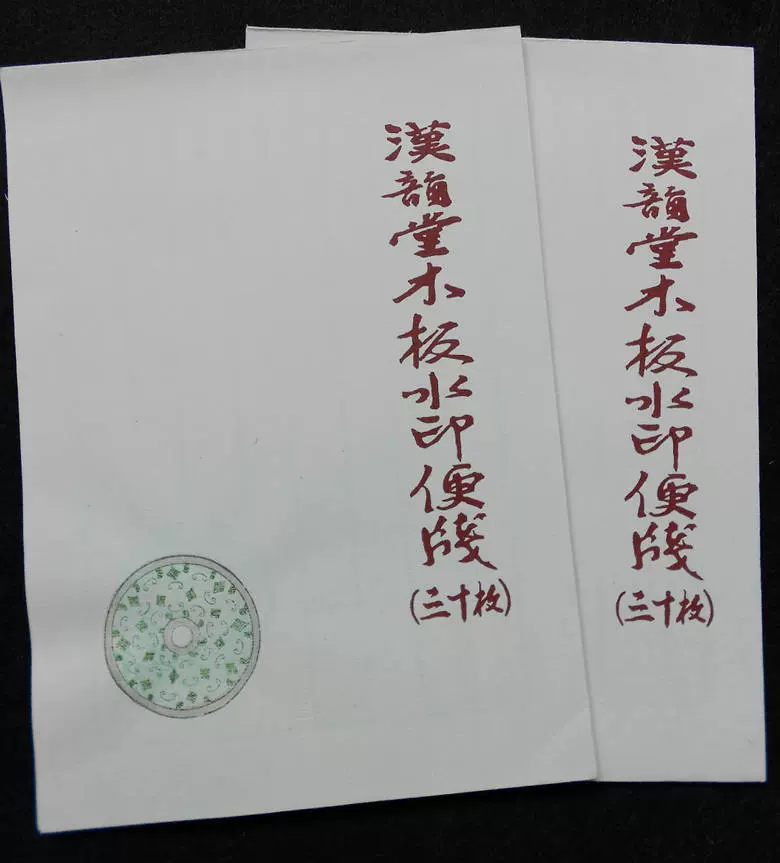 漢韻堂木板水印便牋
(三十枚)
漢韻堂木板水印便牋
(三十枚)